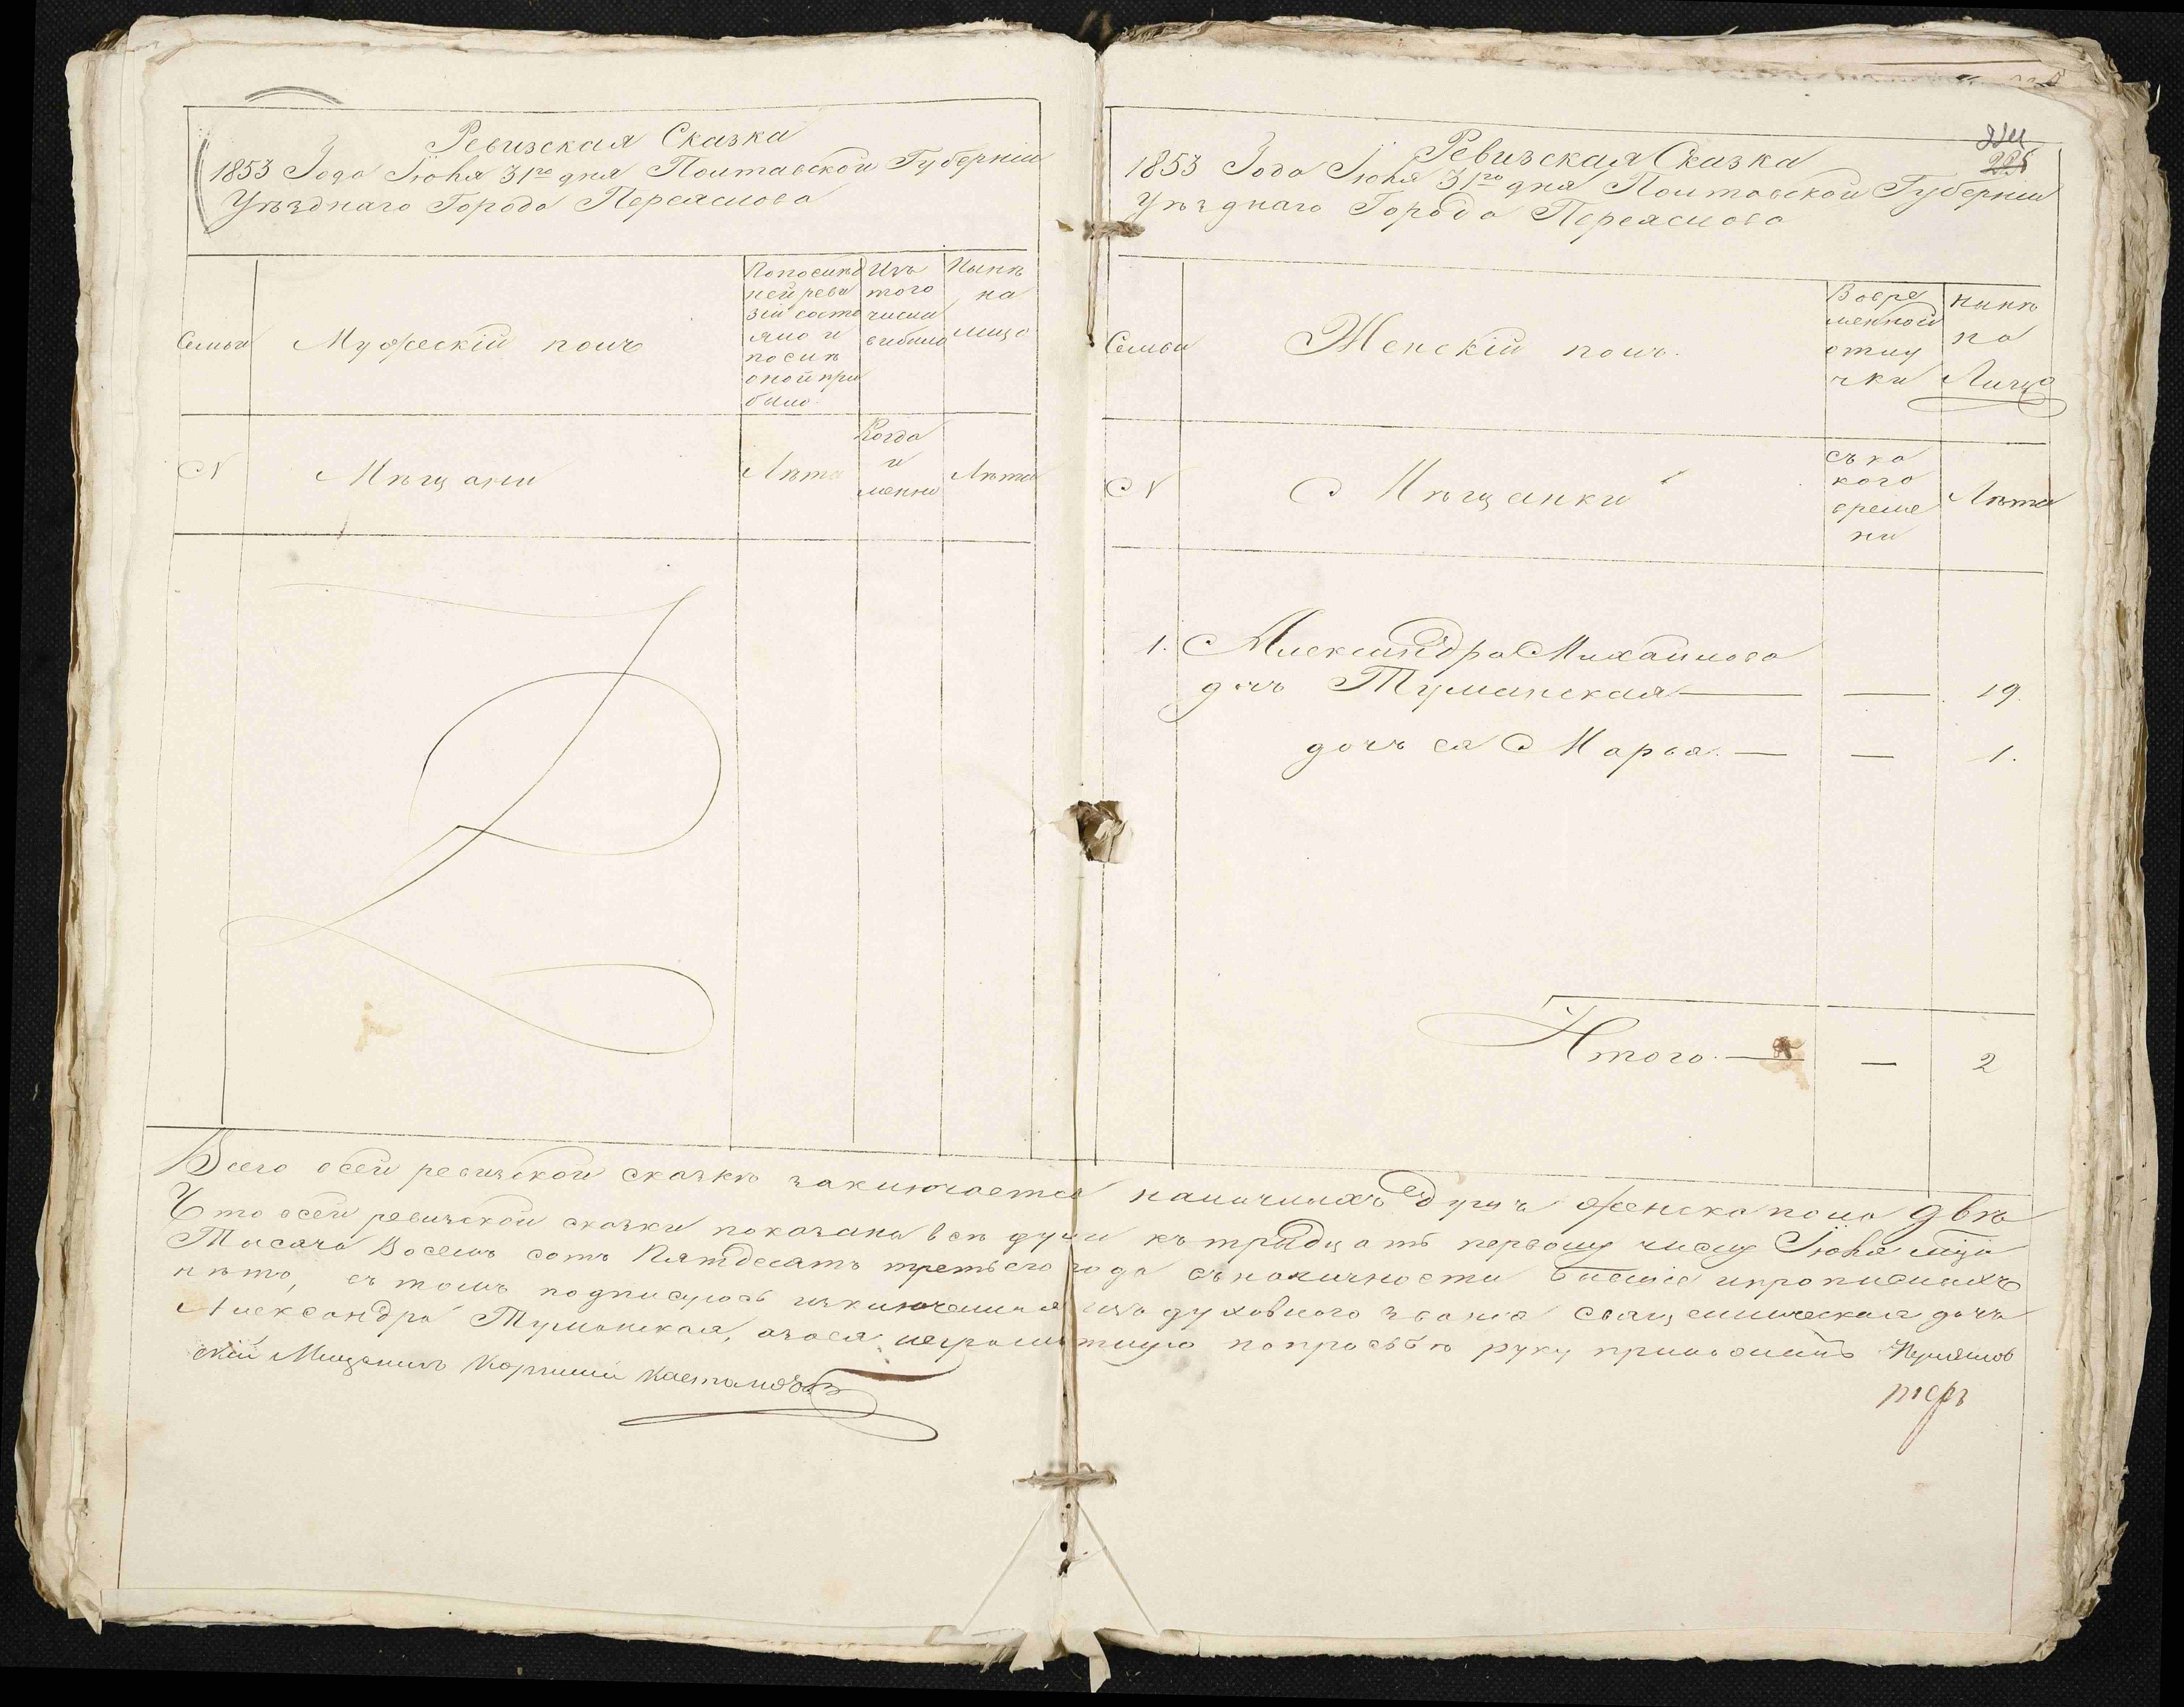 Ревизская Сказка
1853 Года Іюля 31го дня Полтавской Губерніи
Уѣзднаго Города Переяслова
Семьи
Мужескій полъ
По послѣд
ней реви
зіи состо
яло и
послѣ
оной при
было
Изъ
того
числа
выбыло
Нынѣ
на
лицо
N
Мѣщани
Лѣта
Когда
и
менно
Лѣта
Ревизская Сказка
1853 Года Іюля 31го дня Полтавской Губерніи
Уѣзднаго Города Переяслова
Семьи
Женскій полъ.
Вовре
менной
отлу
чки
Нынѣ
на
Лицо
N
Мѣщанки
съ ка
кого
време
ни
Лѣта
1. Александра Михайлова
дочь Туманская — — 19.
дочь ея Марья. — — 1.
Итого. — — 2
Всего всей ревизской сказкѣ заключается наличныхъ душъ женска пола двѣ
Что всей ревизской сказки показаны всѣ души къ тридцать первому числу Іюля мца
Тысяча Восемь сотъ Пятдесятъ третьего года съ наличности бывшіе и прописныхъ
нѣтъ, въ томъ подписуюсь изключенная изъ духовного званія священническая дочь
Александра Туманская, а за ея неграмотную по просьбѣ руку приложилъ
скій Мещанинъ Корнилій